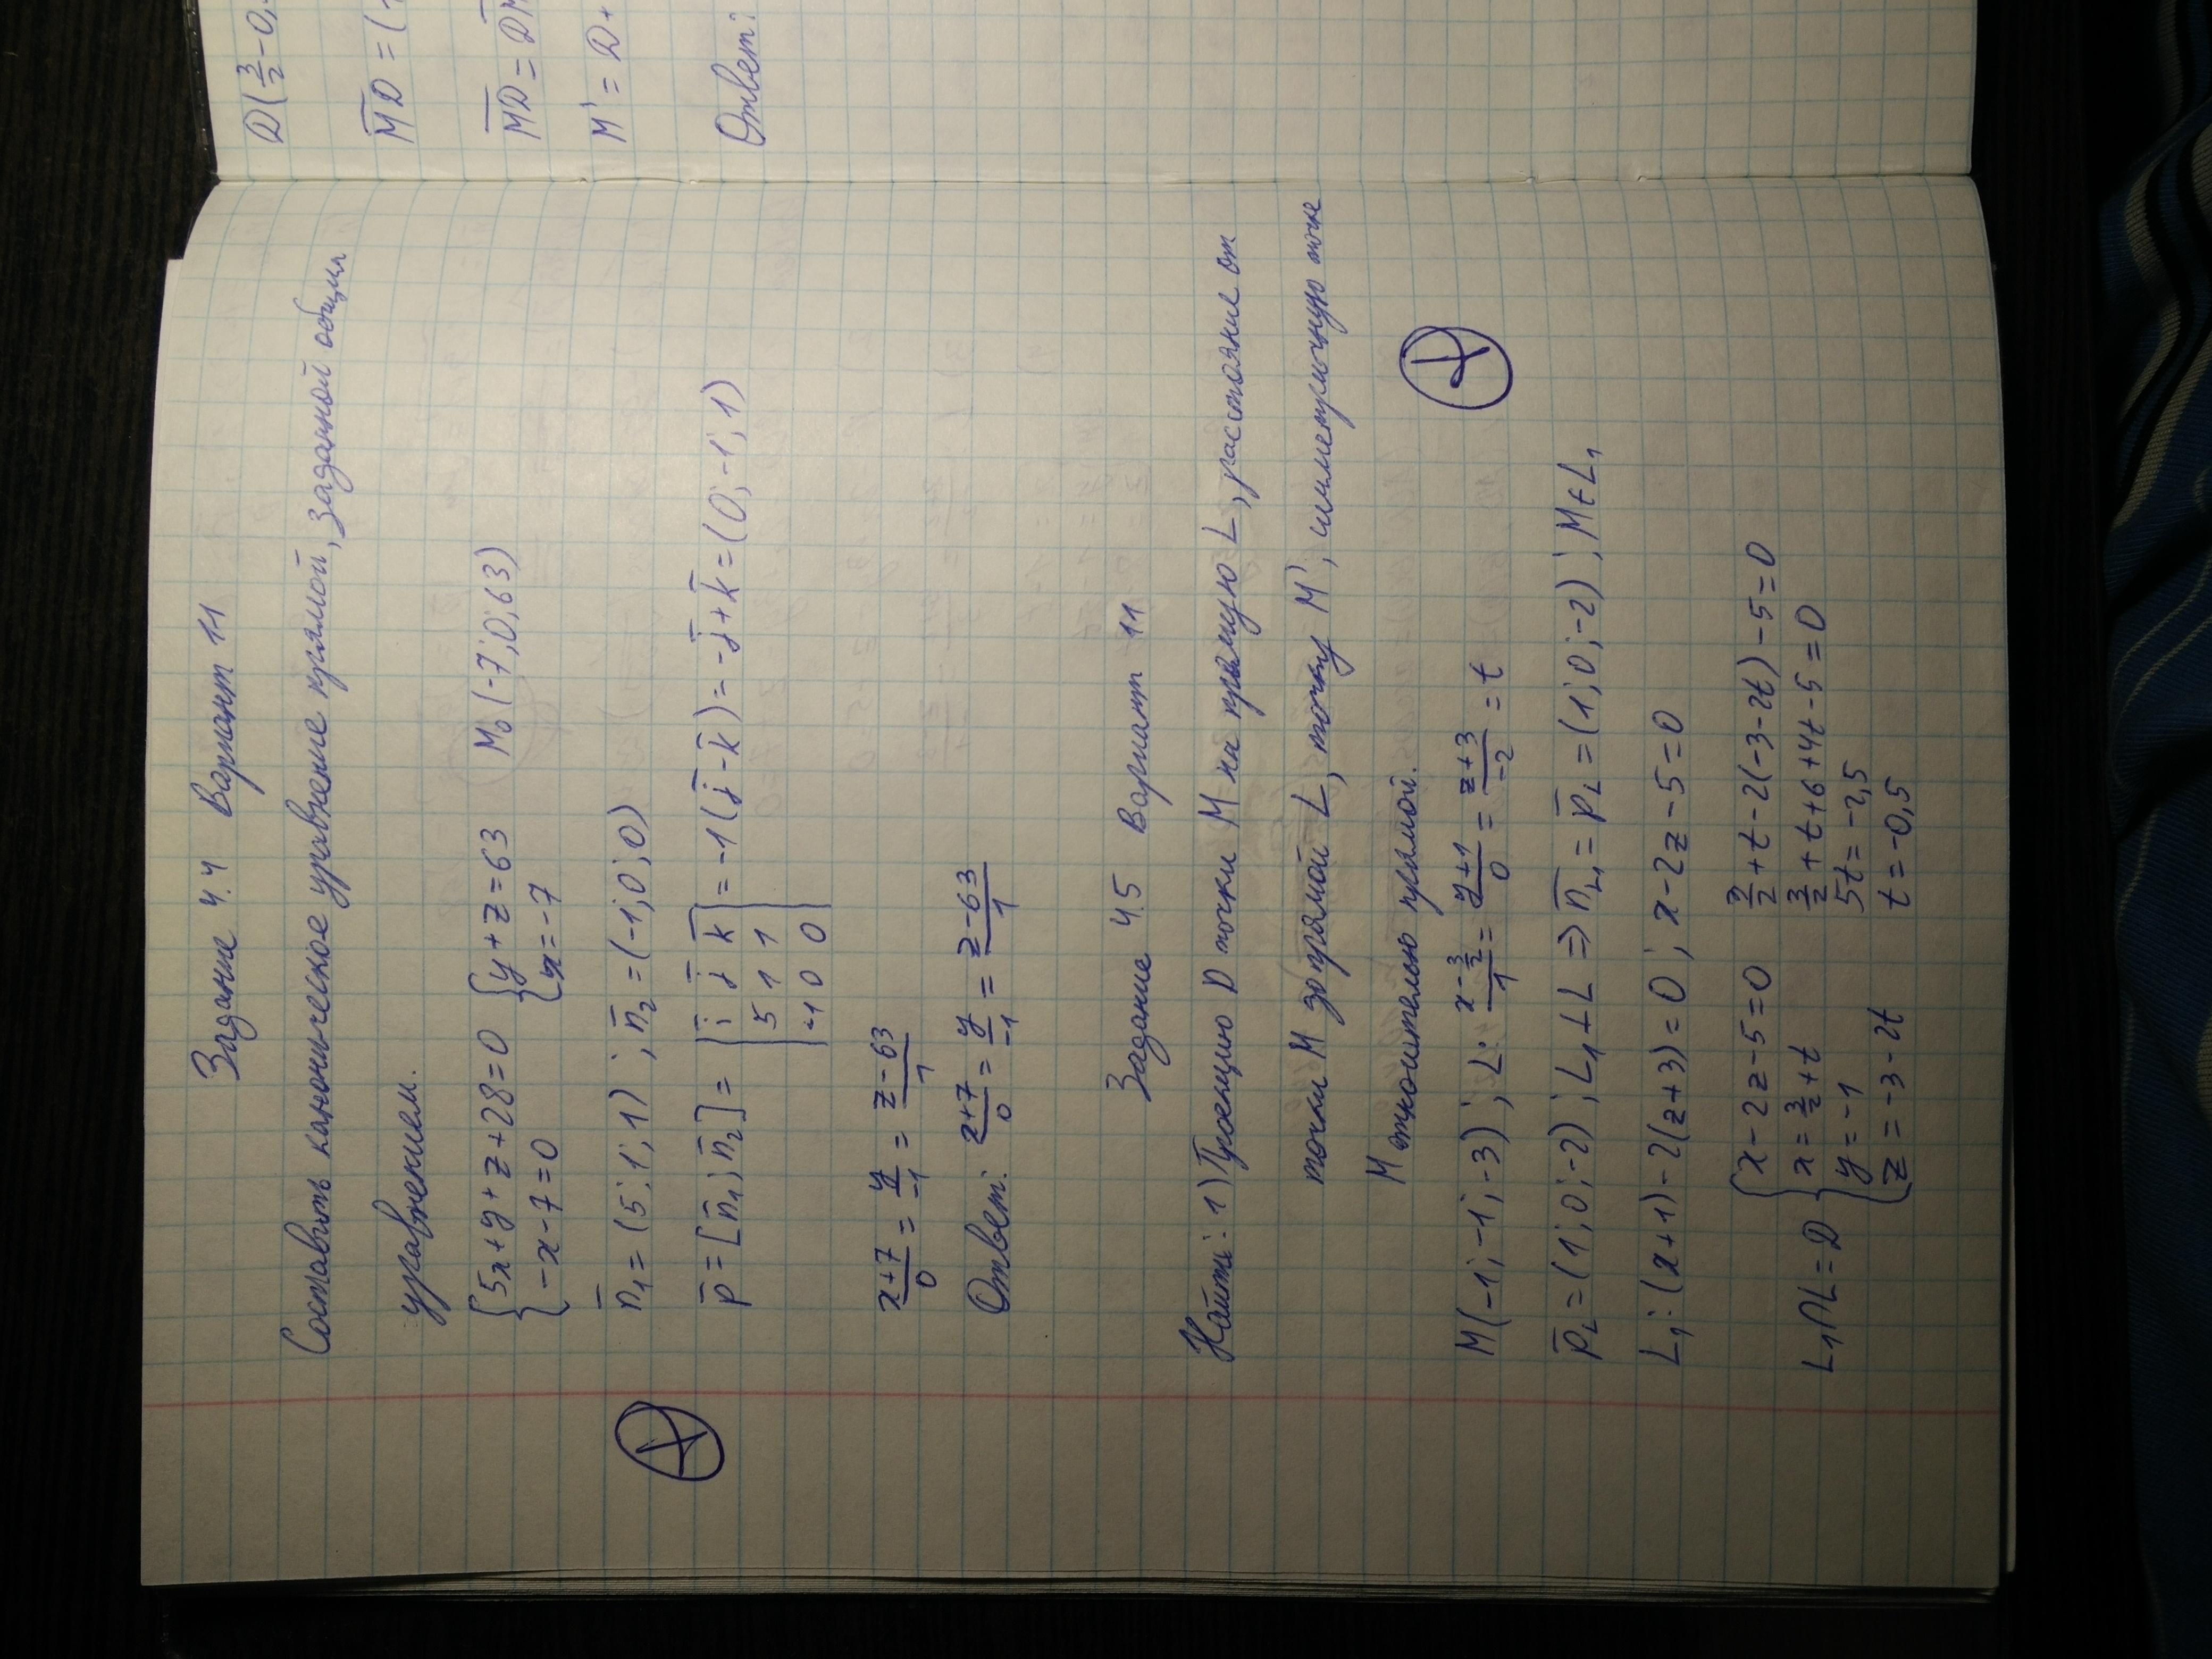 Задание 4.4 Вариант 11
Составить каноническое уравнение прямой, заданной общим
уравнением.
{5x+y+z+28=0 {y+z=63 M₀(-7;0;63)
{-x-7=0 {x=-7
n̄₁=(5;1;1); n̄₂=(-1;0;0)
p̄=[n̄₁;n̄₂]= |ī j̄ k̄| =-1(j̄-k̄)=-j̄+k̄=(0;-1;1)
|5 1 1|
|-1 0 0|
(x+7)/0 = y/-1 = (z-63)/1
Ответ: (x+7)/0 = y/-1 = (z-63)/1
Задание 4.5 Вариант 11
Найти: 1) Проекцию D точки M на прямую L, расстояние от
точки M до прямой L, точку M', симметричную точке
M относительно прямой.
M(-1;-1;-3); L: (x-3/2)/1 = (y+1)/0 = (z+3)/-2 = t
p̄_L=(1;0;-2); L₁⊥L => n̄_L₁=p̄_L=(1;0;-2); M∈L₁
L₁: (x+1)-2(z+3)=0; x-2z-5=0
L₁∩L=D {x-2z-5=0 3/2+t-2(-3-2t)-5=0
{x=3/2+t 3/2+t+6+4t-5=0
{y=-1 5t=-2,5
{z=-3-2t t=-0,5
D(3/2-0,
M̄D̄=(
M̄D̄=D̄M
M'=D+
Ответ: